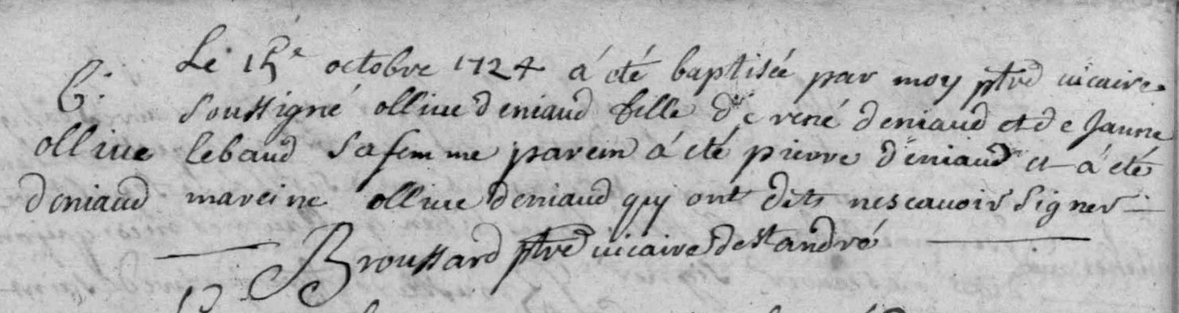 Le 15e octobre 1724 á été baptisée par moy ptre vicaire
B:
soussigné ollive deniaud fille de rené deniaud et de Janne
ollive
lebaud sa femme parein á été pierre deniaud et á été
deniaud
mareine ollive deniaud qui ont dits ne scavoir signer
Broussard ptre vicaire de st andré